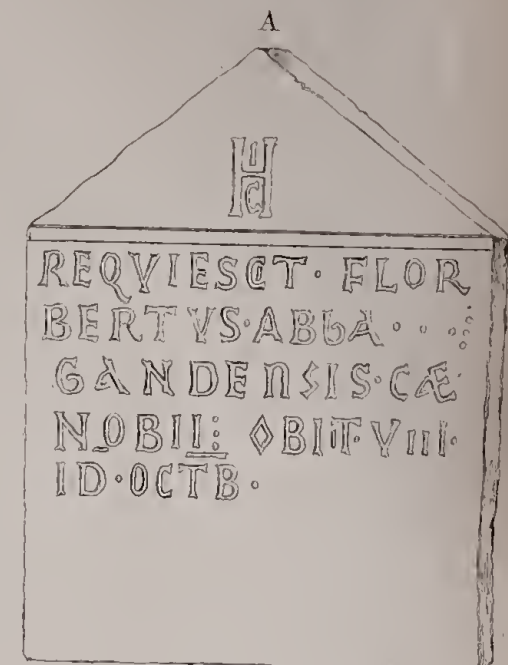 A
HIC
REQVIESCIT · FLOR
BERTVS · ABBA · · ·
GANDENSIS · CÆ
NOBII : OBIIT · VIII ·
ID · OCTB ·